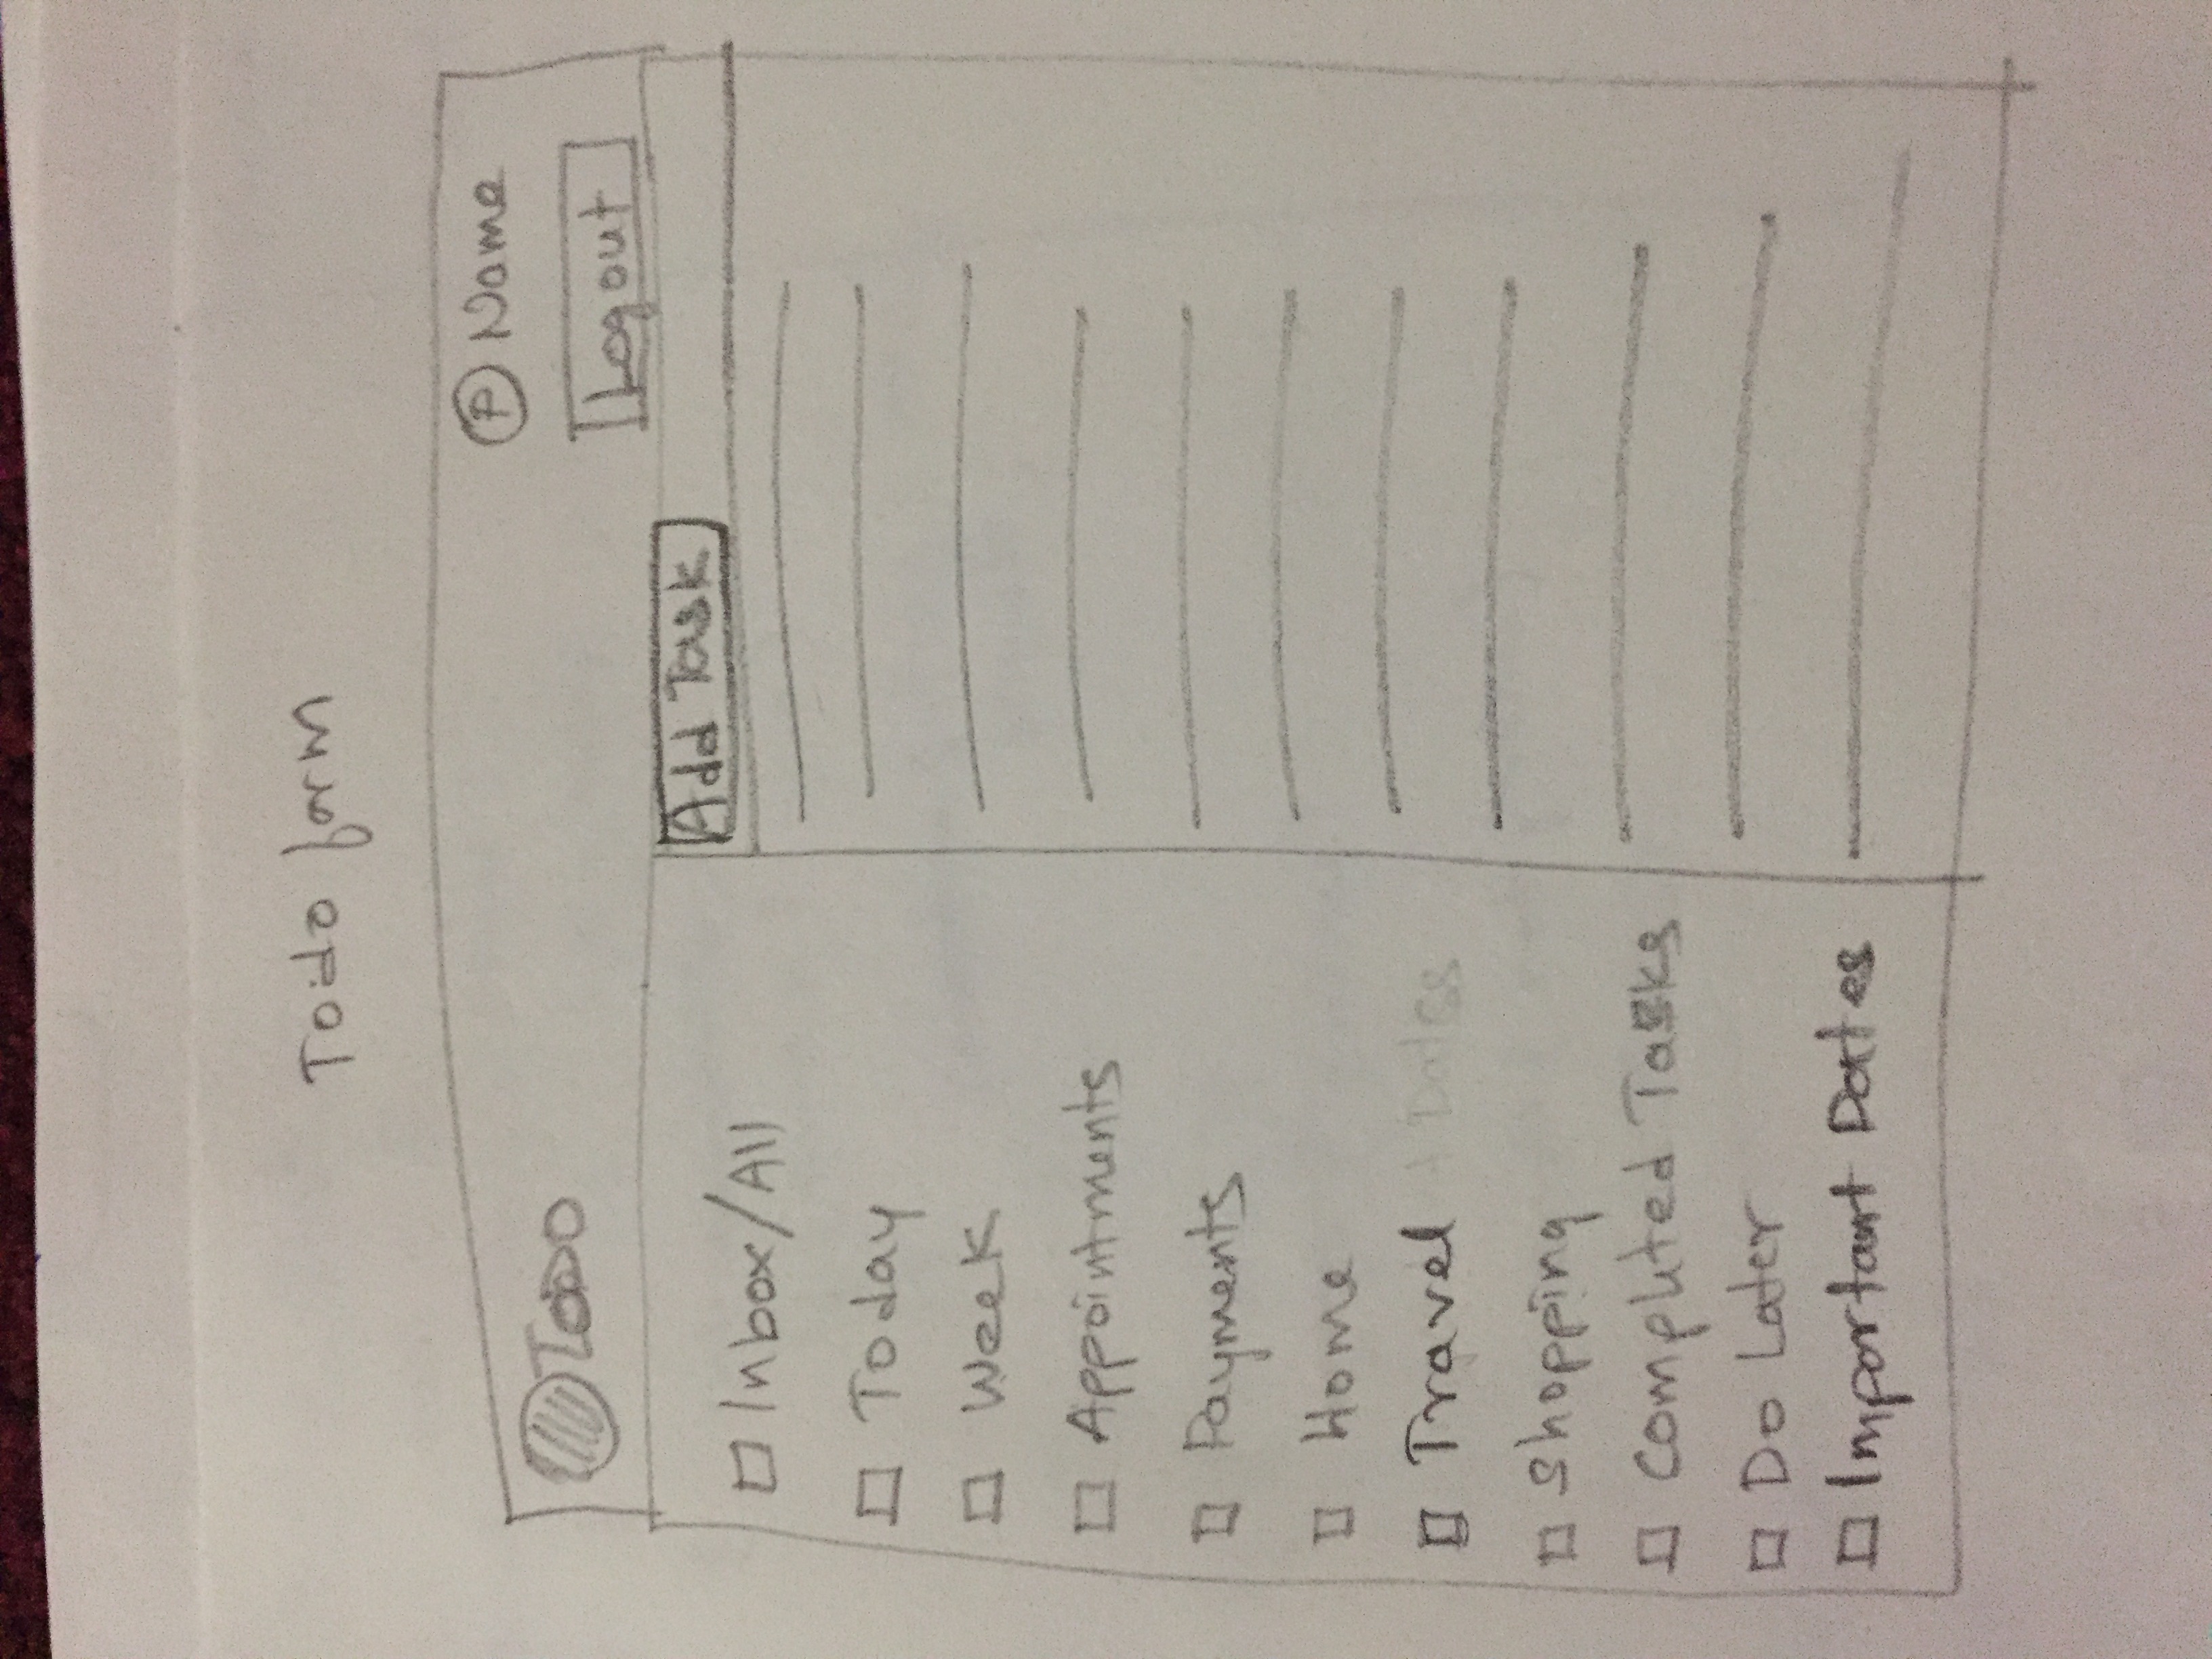 Todo form
P Name
TODO
Logout
Add Task
Inbox/All
Today
Week
Appointments
Payments
Home
Travel
Dates
Shopping
Completed Tasks
Do Later
Important Dates